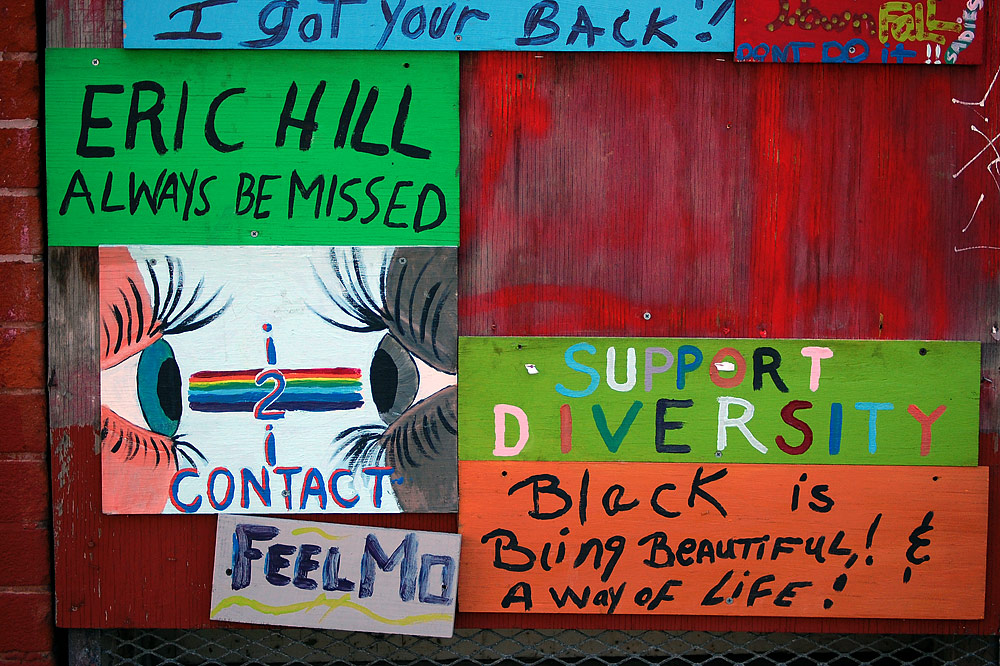 I GOT YOUR BACK!
FALL
DONT DO it !!
SADIES
ERIC HILL
ALWAYS BE MISSED
i
2
i
CONTACT
FEEL MO
SUPPORT
DIVERSITY
Black is
Bling BEAUTIFUL,! &
A WAY OF LIFE!